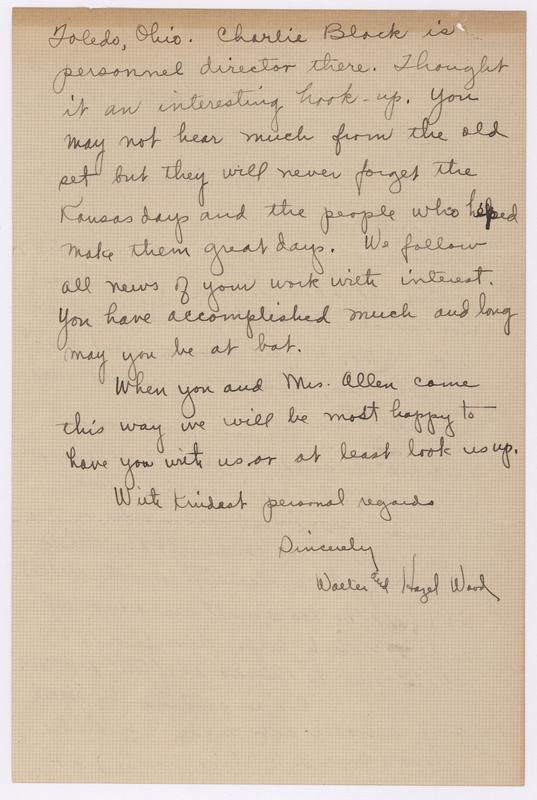 Toledo, Ohio. Charlie Black is
personnel director there. Thought
it an interesting hook-up. You
may not hear much from the old
set but they will never forget the
Kansas days and the people who helped
make them great days. We follow
all news of your work with interest.
You have accomplished much and long
may you be at bat.
When you and Mrs. Allen come
this way we will be most happy to
have you with us or at least look us up.
With Kindest personal regards
Sincerely
Walter and Hazel Wood